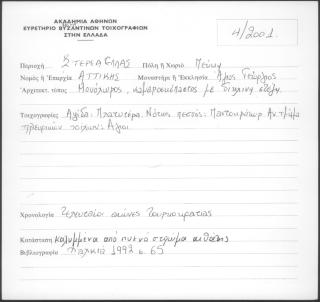 ΑΚΑΔΗΜΙΑ ΑΘΗΝΩΝ
ΕΥΡΕΤΗΡΙΟ ΒΥΖΑΝΤΙΝΩΝ ΤΟΙΧΟΓΡΑΦΙΩΝ
ΣΤΗΝ ΕΛΛΑΔΑ
4/2001.
Περιοχή ΣΤΕΡΕΑ ΕΛΛΑΣ Πόλη ή Χωριό
Νομός ή Επαρχία ΑΤΤΙΚΗΣ Μοναστήρι ή Εκκλησία Άγιος Γεώργιος
Αρχιτεκτ. τύπος Μονόχωρος, καμαροσκέπαστος με δίκλινη στέγη.
Τοιχογραφίες Αψίδα: Πλατυτέρα. Νότιος πεσσός: Παντοκράτωρ. Αν. τμήμα
πλευρικών τοίχων: Άγιοι
Χρονολογία Τελευταίοι αιώνες Τουρκοκρατίας
Κατάσταση καλυμμένα από πυκνό στρώμα αιθάλης
Βιβλιογραφία 1992 σ. 65